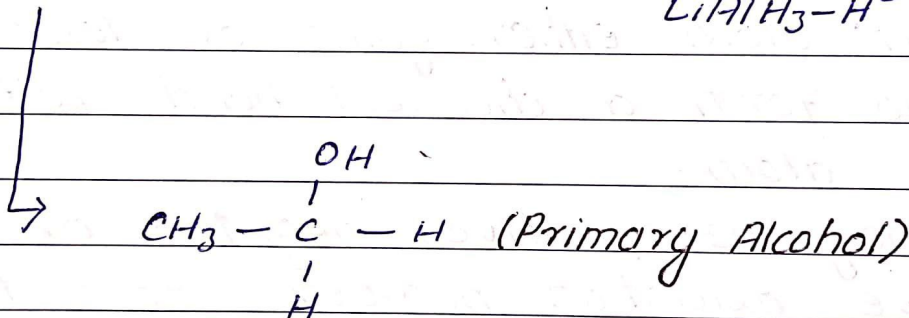 LiAlH₃-H
OH
CH₃ - C - H (Primary Alcohol)
H